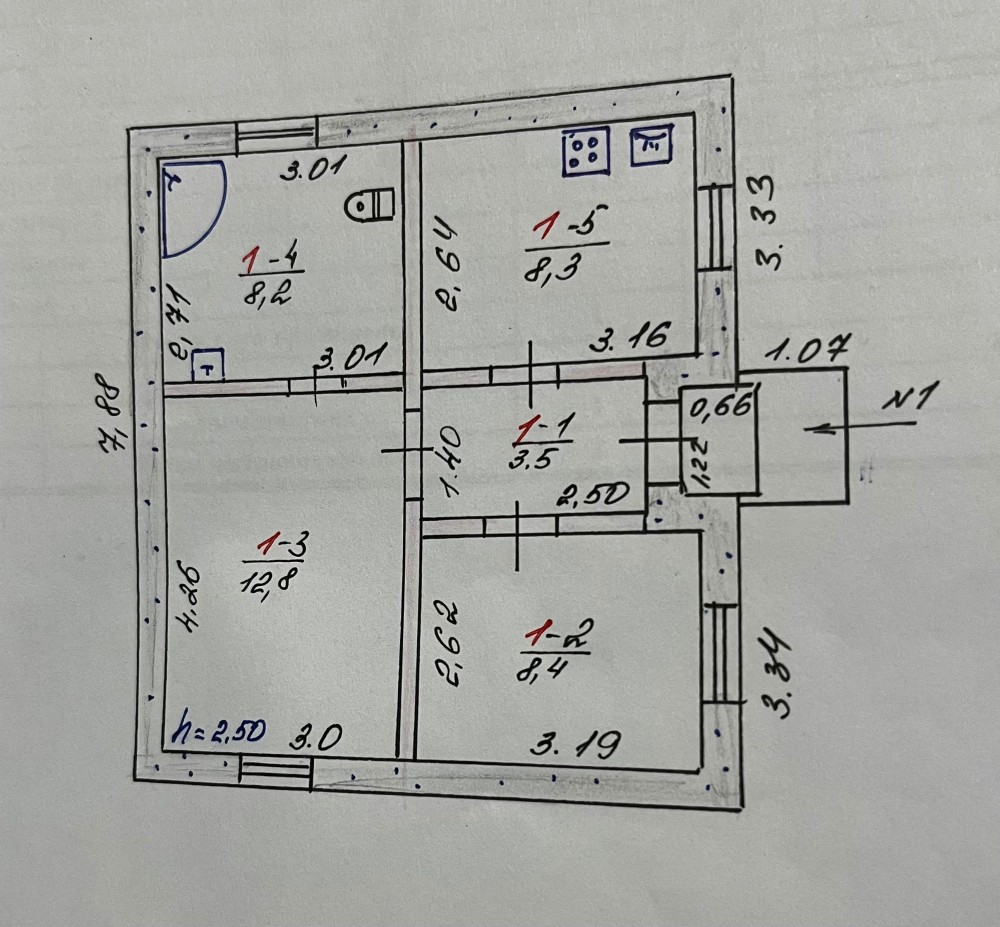 3.01
1-4
8,2
2,71
3.01
2,64
1-5
8,3
3.16
3.33
1.07
N1
0,66
1,22
1-1
3.5
1.40
2,50
7,88
1-3
12,8
4.26
h=2,50
3.0
2,62
1-2
8,4
3.19
3.34